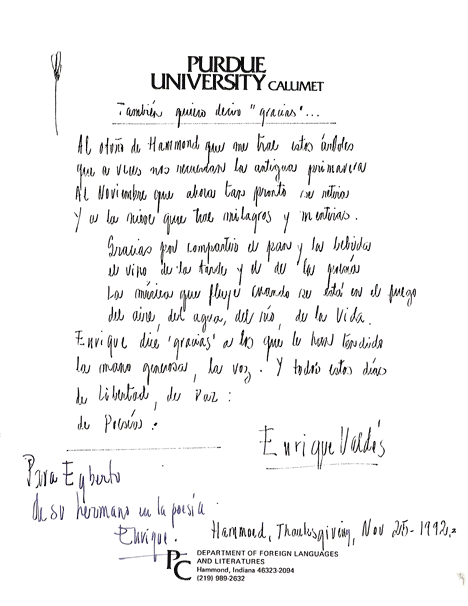 PURDUE
UNIVERSITY CALUMET
También quiero decir "gracias"...
Al otoño de Hammond que me trae estos árboles
que a veces nos recuerdan la antigua primavera
Al Noviembre que ahora tan pronto se retira
Y a la nieve que trae milagros y mentiras.
Gracias por compartir el pan y la bebida
el vino de la tarde y el de la poesía
La música que fluye cuando se está en el fuego
del aire, del agua, del río, de la Vida.
Enrique dice 'gracias' a los que le han tendido
la mano generosa, la voz. Y todos estos días
de Libertad, de Paz:
de Poesía.
Enrique Valdés
Para Egberto
de su hermano en la poesía.
Enrique.
Hammond, Thanksgiving, Nov 25-1992.
PC
DEPARTMENT OF FOREIGN LANGUAGES
AND LITERATURES
Hammond, Indiana 46323-2094
(219) 989-2632